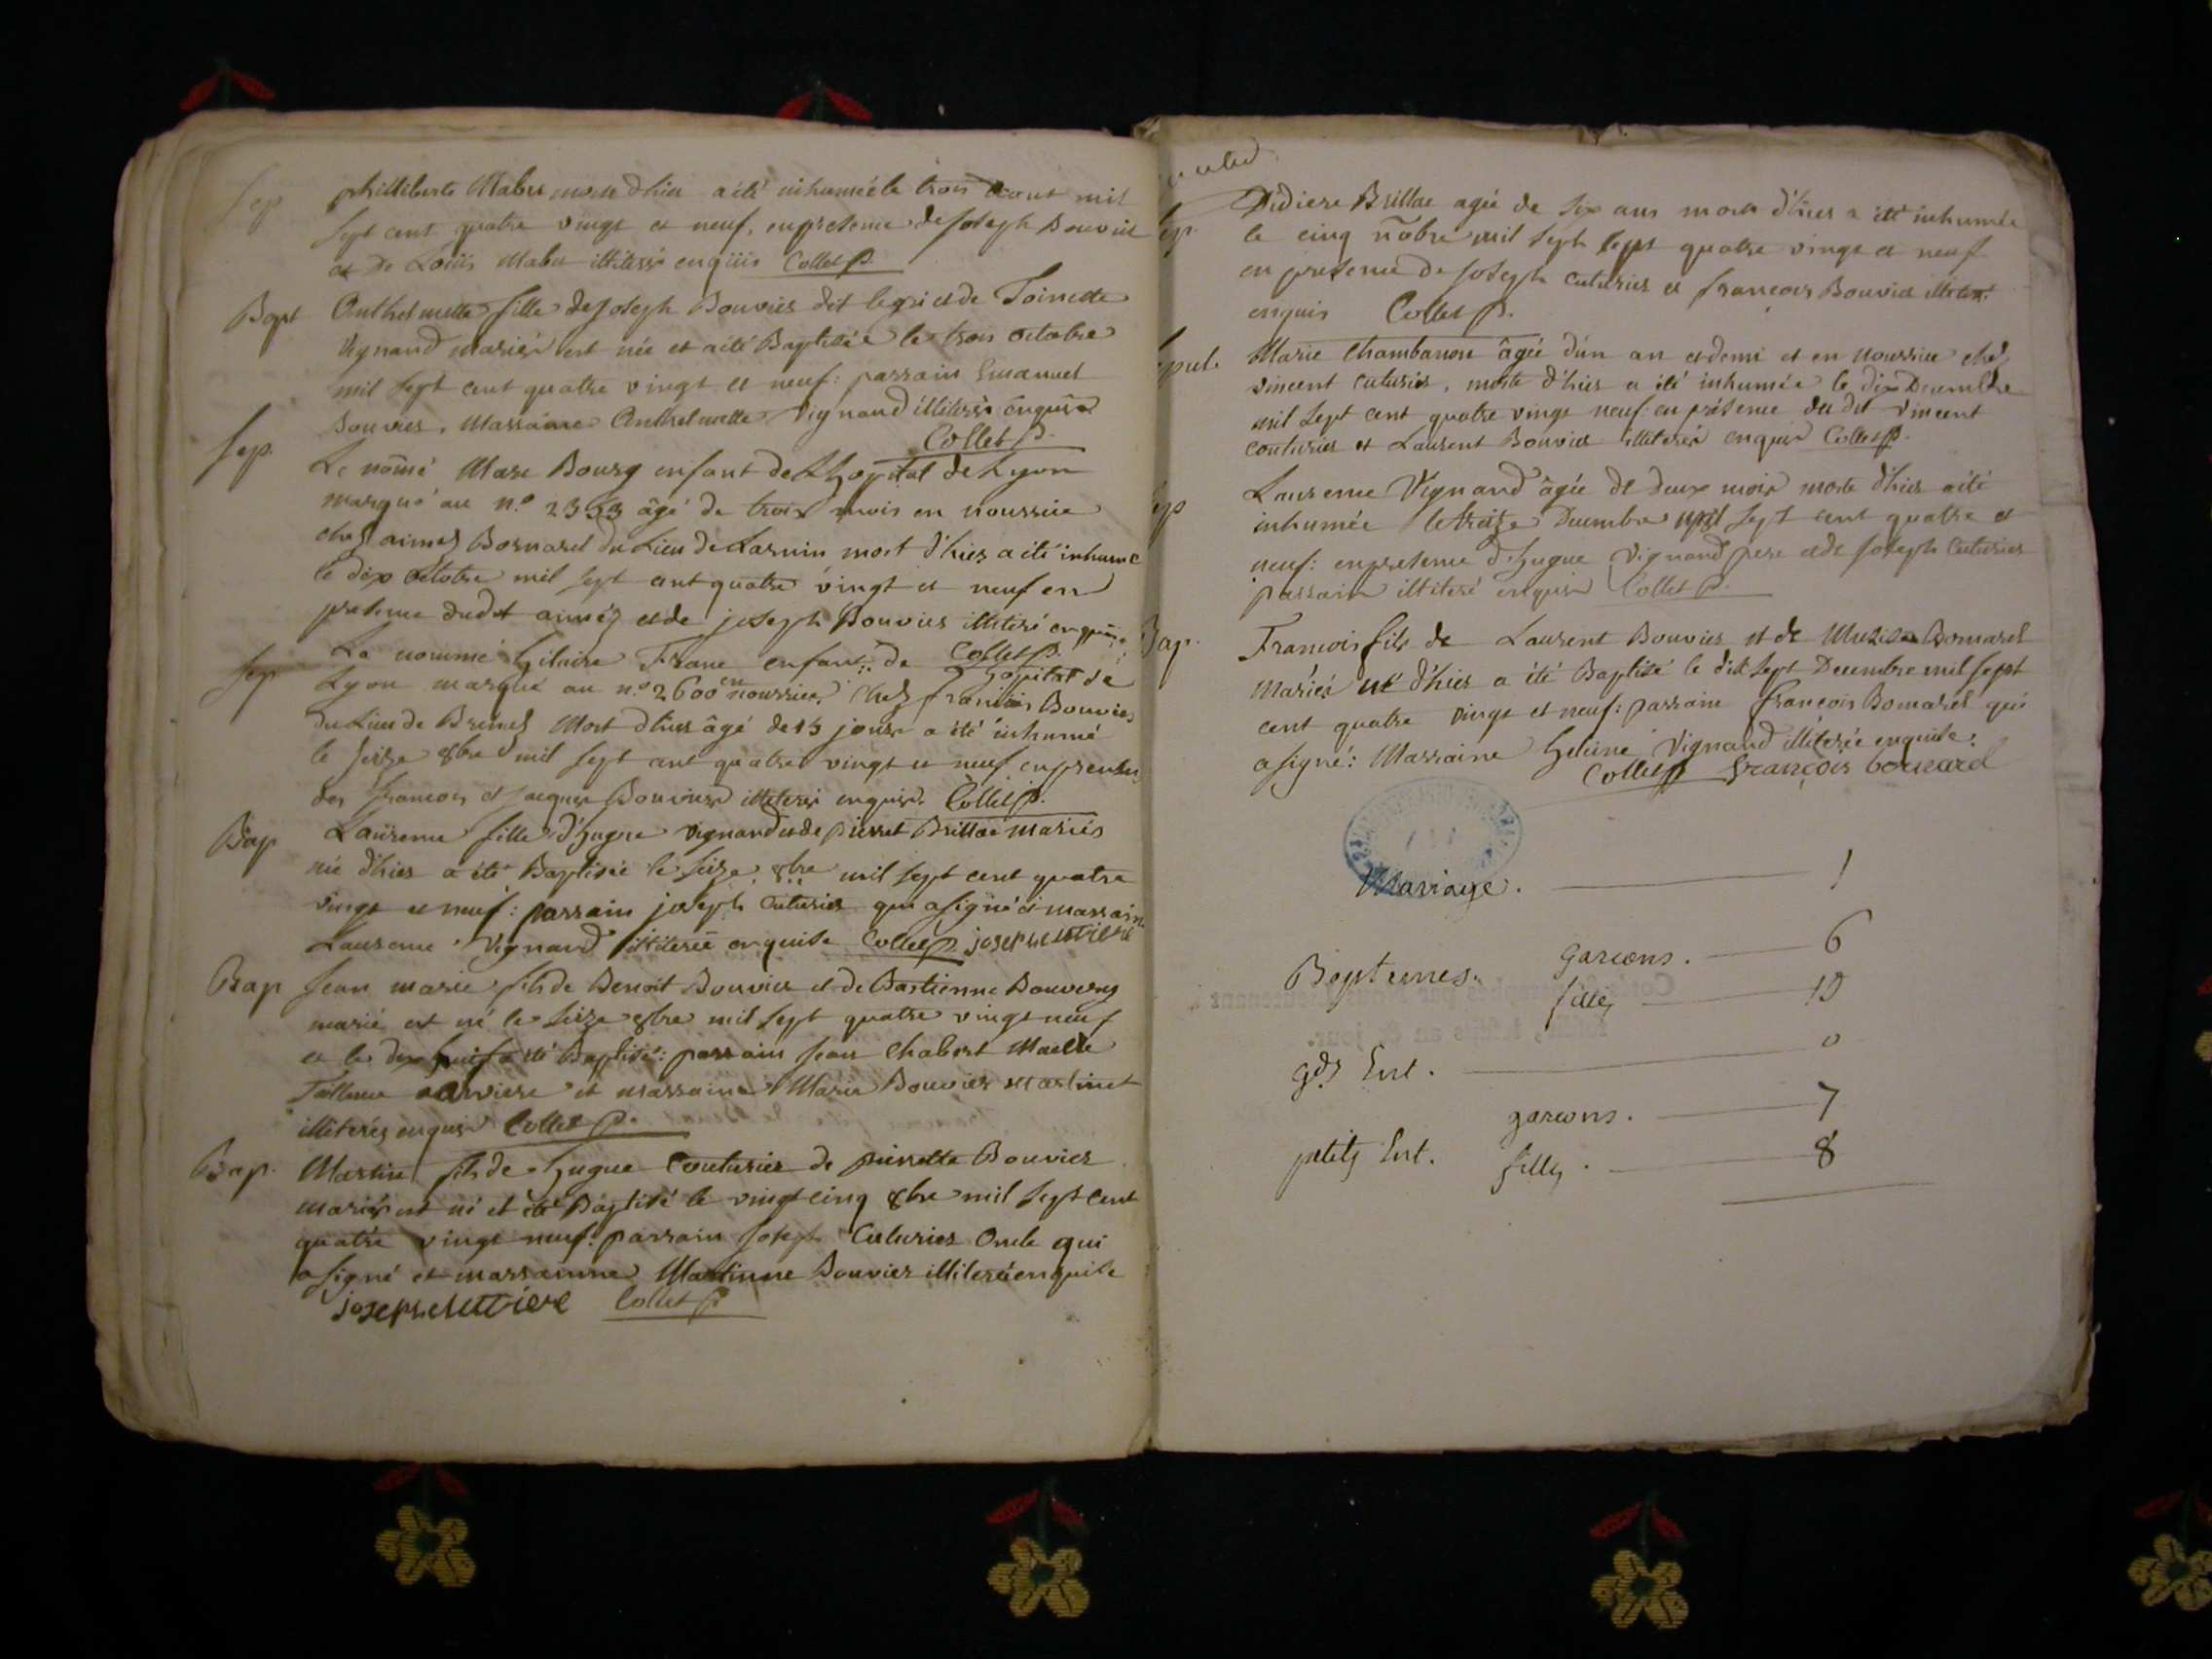 Sep philliberte Mabu morte d'hier a été inhumée le trois aout mil
sept cent quatre vingt et neuf, en presence de Joseph Bouvier
et De Loüis Mabu illiteré enquis Collet p.
Bapt Anthelmette fille de Joseph Bouvier dit legri et de Toinette
Vignand mariés est née et a été Baptisée le trois octobre
mil sept cent quatre vingt et neuf: parrain Emanuel
Bouvier, Marraine Anthelmette Vignand illiterés enquis
Collet p.
Sep. Le nommé Marc Bourg enfant de L'hopital de Lyon
marqué au n.o 2353 âgé de trois mois en nourrice
chez aimé Bornarel du Lieu de mort d'hier a été inhumé
le dix octobre mil sept cent quatre vingt et neuf en
presence dudit aimé et de joseph Bouvier illiteré enquis
Collet p.
Sep Le nommé hilaire Franc enfant de L'hopital de
Lyon marqué au n.o 2600 en nourrice chez françois Bouvier
du Lieu de Mort d'hier âgé de 15 jours a été inhumé
le seize 8bre mil sept cent quatre vingt et neuf en presence
des francois et jacques Bouvier illiterés enquis. Collet p.
Bap Laurence fille d'hugue Vignand et de pierret Brillat mariés
née d'hier a été Baptisée le seize 8bre mil sept cent quatre
vingt et neuf: parrain joseph Cuturier qui a signé et marraine
Laurence Vignand illiterée enquise Collet p. joseph cuturier
Bap Jean marie fils de Benoit Bouvier et de Bastienne Bouvery
marié est né le seize 8bre mil sept quatre vingt neuf
et le dix huit a été Baptisé: parrain Jean Chabert
Tailleur et marraine Marie Bouvier
illiterés enquis Collet p.
Bap. Martin fils de hugue Couturier de pierrette Bouvier
mariés est né et été Baptisé le vingt cinq 8bre mil sept cent
quatre vingt neuf: parrain Joseph Cuturier Oncle qui
a signé et marrainne Martinne Bouvier illiterée enquise
joseph cuturier Collet p
Didiere Brillat agée de six ans morte d'hier a été inhumée
Sep. le cinq nobre mil sept sept quatre vingt et neuf
en presence de Joseph cuturier et francois Bouvier illiter.
enquis Collet p.
Sepul. Marie Chambanon âgée d'un an et demi et en nourrice chez
vincent cuturier, morte d'hier a été inhumée le dix Decembre
mil sept cent quatre vingt neuf: en présence du dit Vincent
couturier et Laurent Bouvier illiterés enquis Collet p.
Sep Laurence Vignand âgée de deux mois morte d'hier a été
inhumée le treize Decembre mil sept cent quatre et
neuf: en presence d'hugue Vignand pere et de Joseph Cuturier
parrain illiteré enquis Collet p.
Bap. Francois fils de Laurent Bouvier et de Bomarel
Mariés né d'hier a été Baptisé le dix sept Decembre mil sept
cent quatre vingt et neuf: parrain françois Bomarel qui
a signé: Marraine helaine Vignand illiterée enquise.
Collet p françois bomarel
Mariage. 1
garcons. 6
Baptemes. filles 10
gds Ent. 0
garcons. 7
petits Ent. filles. 8